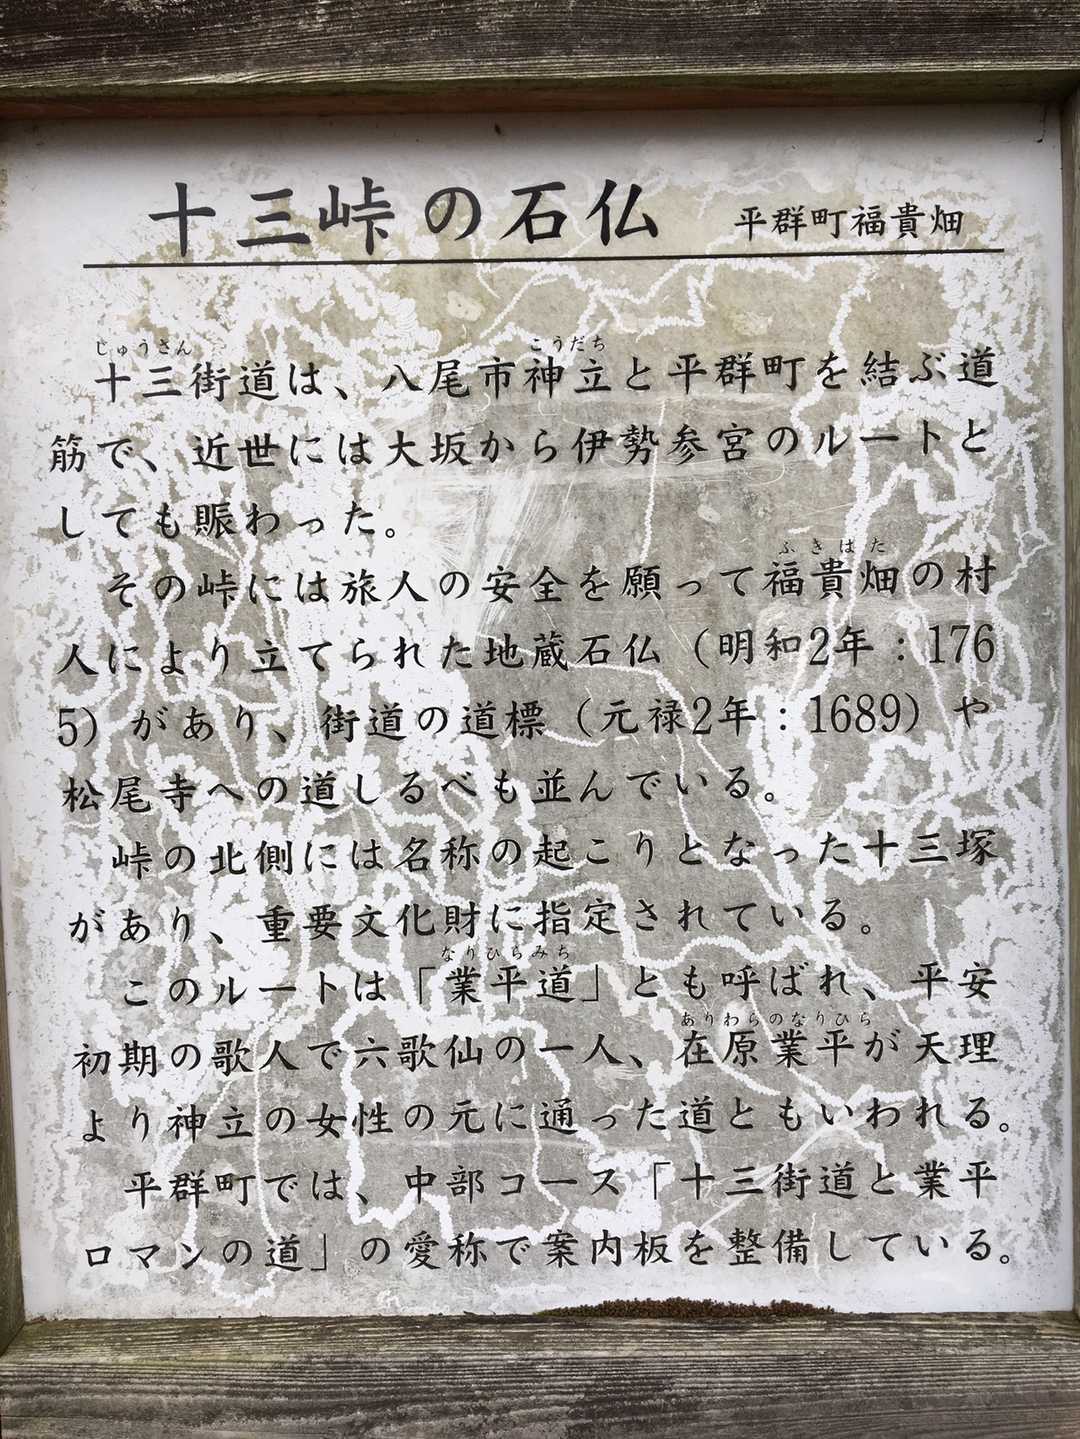 十三峠の石仏 平群町福貴畑
じゅうさん こうだち
十三街道は、八尾市神立と平群町を結ぶ道
筋で、近世には大坂から伊勢参宮のルートと
しても賑わった。
ふきはた
その峠には旅人の安全を願って福貴畑の村
人により立てられた地蔵石仏(明和2年:176
5)があり、街道の道標(元禄2年:1689)や
松尾寺への道しるべも並んでいる。
峠の北側には名称の起こりとなった十三塚
があり、重要文化財に指定されている。
なりひらみち
このルートは「業平道」とも呼ばれ、平安
ありわらのなりひら
初期の歌人で六歌仙の一人、在原業平が天理
より神立の女性の元に通った道ともいわれる。
平群町では、中部コース「十三街道と業平
ロマンの道」の愛称で案内板を整備している。